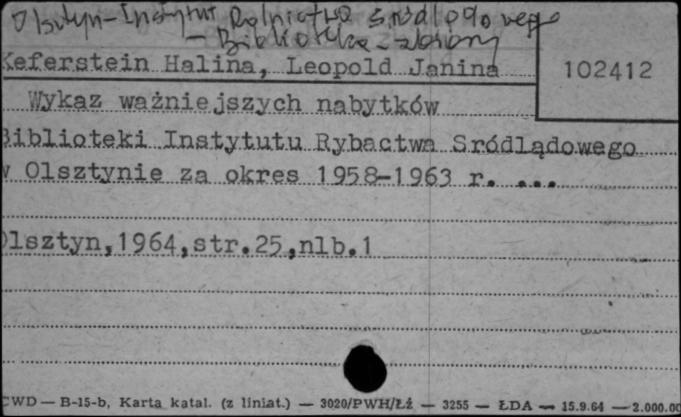 Olsztyn-Instytut Rolnictwa Śródlądowego
- Biblioteka - zbiory
Keferstein Halina, Leopold Janina
102412
Wykaz ważniejszych nabytków
Biblioteki Instytutu Rybactwa Sródlądowego
w Olsztynie za okres 1958-1963 r. ...
Olsztyn,1964,str.25,nlb.1
CWD — B-15-b, Karta katal. (z liniat.) — 3020/PWH/Łż — 3255 — ŁDA — 15.9.64 — 2.000.00